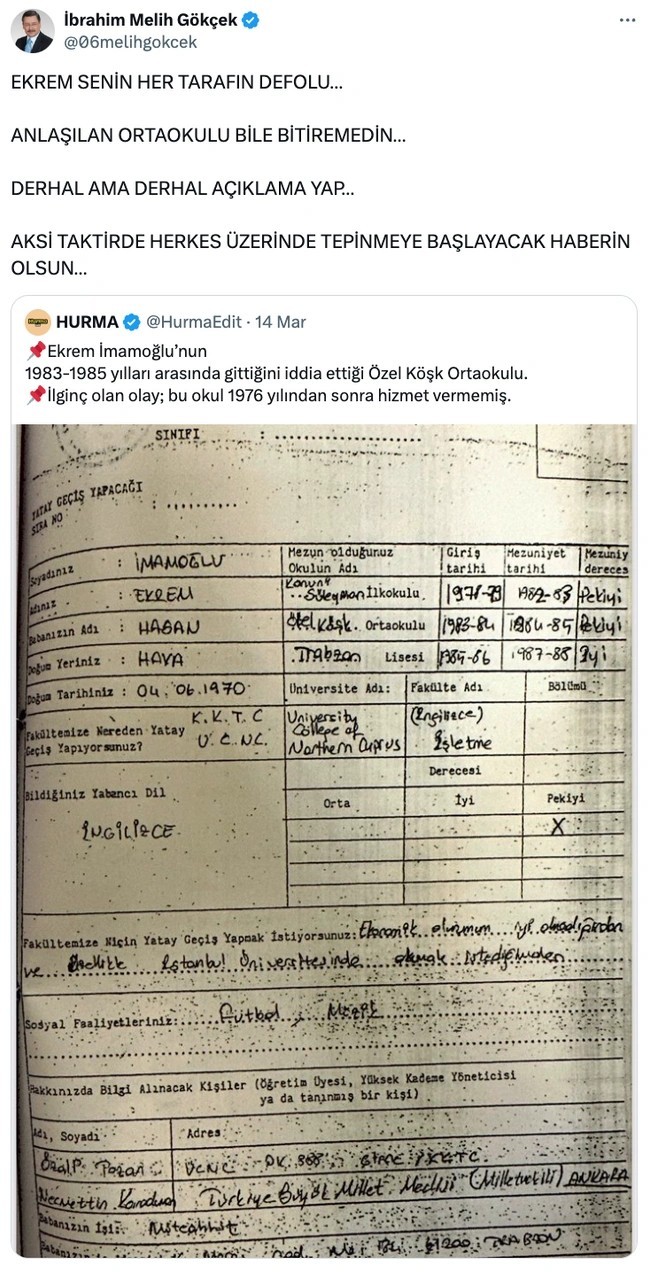 İbrahim Melih Gökçek
@06melihgokcek
EKREM SENİN HER TARAFIN DEFOLU...
ANLAŞILAN ORTAOKULU BİLE BİTİREMEDİN...
DERHAL AMA DERHAL AÇIKLAMA YAP...
AKSİ TAKTİRDE HERKES ÜZERİNDE TEPİNMEYE BAŞLAYACAK HABERİN
OLSUN...
HURMA @HurmaEdit · 14 Mar
📌Ekrem İmamoğlu’nun
1983-1985 yılları arasında gittiğini iddia ettiği Özel Köşk Ortaokulu.
📌İlginç olan olay; bu okul 1976 yılından sonra hizmet vermemiş.
SINIFI : ....................
YATAY GEÇİŞ YAPACAĞI
SIRA NO : ..........
Soyadınız : İMAMOĞLU
Mezun olduğunuz Okulun Adı
Giriş tarihi
Mezuniyet tarihi
Mezuniy dereces
Adınız : EKREM
Kanuni Süleyman İlkokulu
1982-83 Pekiyi
Babanızın Adı : HASAN
Özel Köşk. Ortaokulu 1983-84 1984-85 Pekiyi
Doğum Yeriniz : HAVA
Trabzon Lisesi 1985-86 1987-88 İyi
Doğum Tarihiniz : 04.06.1970
Üniversite Adı: Fakülte Adı Bölümü
Fakültemize Nereden Yatay
Geçiş Yapıyorsunuz?
K.K.T.C
U.C.N.C.
University
College of
Northern Cyprus
(İngilizce)
İşletme
Bildiğiniz Yabancı Dil
Derecesi
Orta İyi Pekiyi
İNGİLİZCE
X
Fakültemize Niçin Yatay Geçiş Yapmak İstiyorsunuz: Ekonomik durumum iyi olmadığından
ve Özellikle İstanbul Üniversitesinde okumak istediğimden
Sosyal Faaliyetleriniz: Futbol, Müzik
Hakkınızda Bilgi Alınacak Kişiler (Öğretim Üyesi, Yüksek Kademe Yöneticisi
ya da tanınmış bir kişi)
Adı, Soyadı Adres
GİRNE / KKTC.
Necmettin Karaduman Türkiye Büyük Millet Meclisi (Milletvekili) ANKARA
Babanızın İşi: Müteahhit
61200 TRABZON